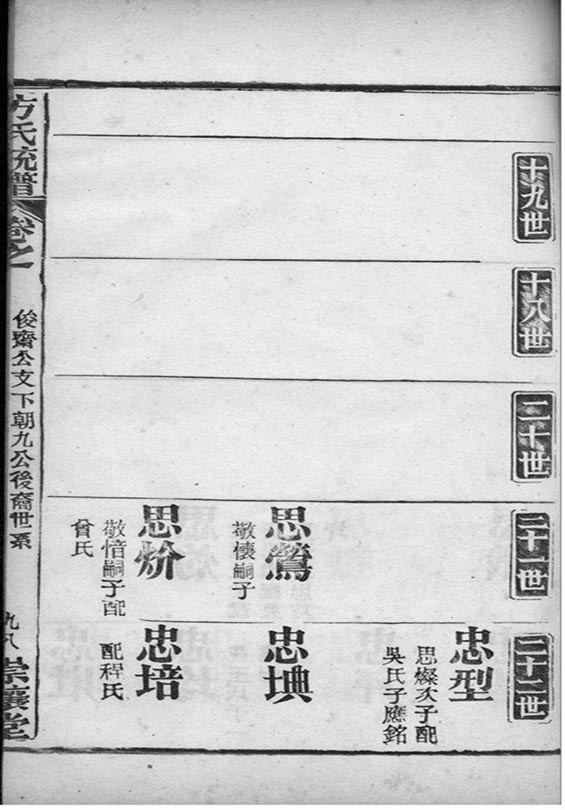 十九世
十八世
二十世
二十一世
二十二世
忠型
思燦次子配
吳氏子應銘
思鶯
敬懷嗣子
忠㙉
思炌
敬愔嗣子配
曾氏
忠培
配程氏
方氏統譜
卷之
俊齋公支下朝九公後裔世系
九八
崇讓堂